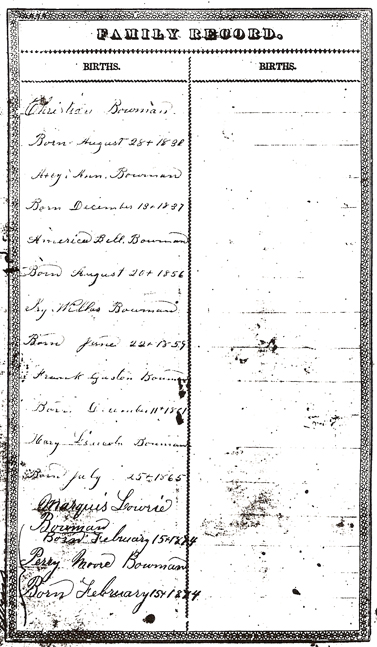 FAMILY RECORD.
BIRTHS.
BIRTHS.
Christian Bowman.
Born August 28th
Ann. Bowman
Born December 19th 1837
America Bell. Bowman
Born August 20th 1856
Ivy. Bowman
Born June 22th 1859
Frank Gaston Bowman
Born December 11th 1861
Mary Lincoln Bowman
Born July 25th 1865
Marquis Lowrie
Bowman
Born February 15th 1874
Perry Moore Bowman
Born February 15th 1874